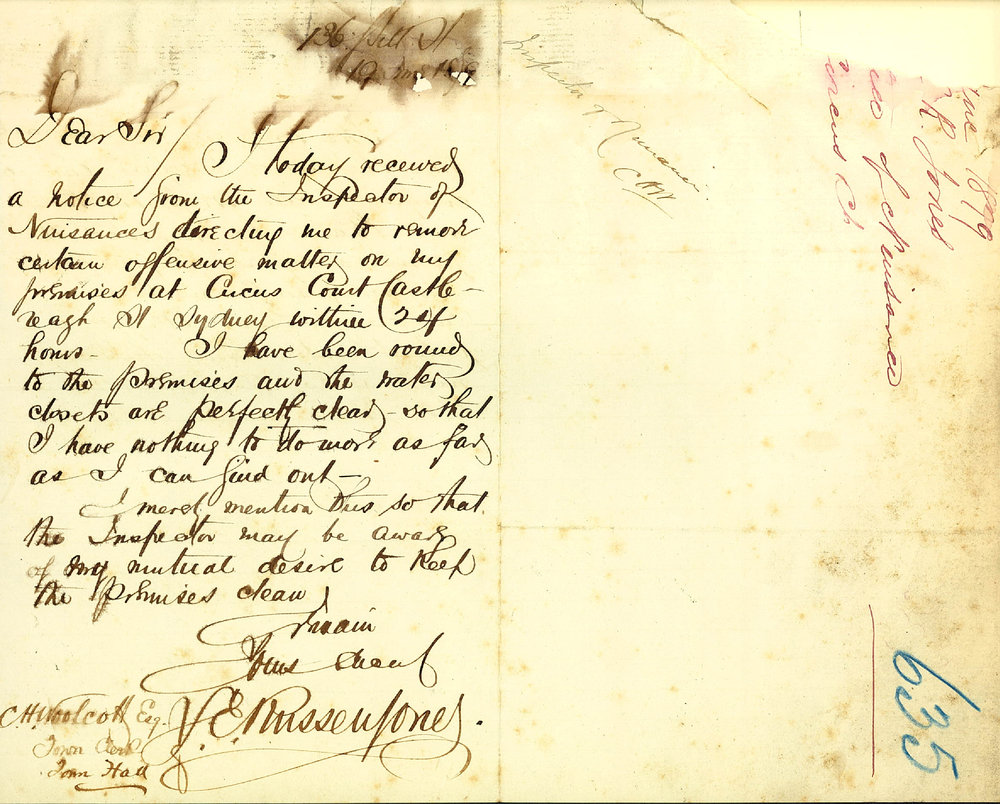 126 Pitt St
19 June 1879
Dear Sir
I today received
a notice from the Inspector of
Nuisances directing me to remove
certain offensive matter on my
premises at Circus Court Castle-
reagh St Sydney within 24
hours - I have been round
to the premises and the water
closets are perfectly clear - so that
I have nothing to do more as far
as I can find out -
I merely mention this so that
the Inspector may be aware
of my mutual desire to keep
the premises clean
I remain
Yours
C H Woolcott Esq.
Town Clerk
Town Hall
Inspector of Nuisances
C H W
R. Jones
of Nuisance
Circus Ct
635